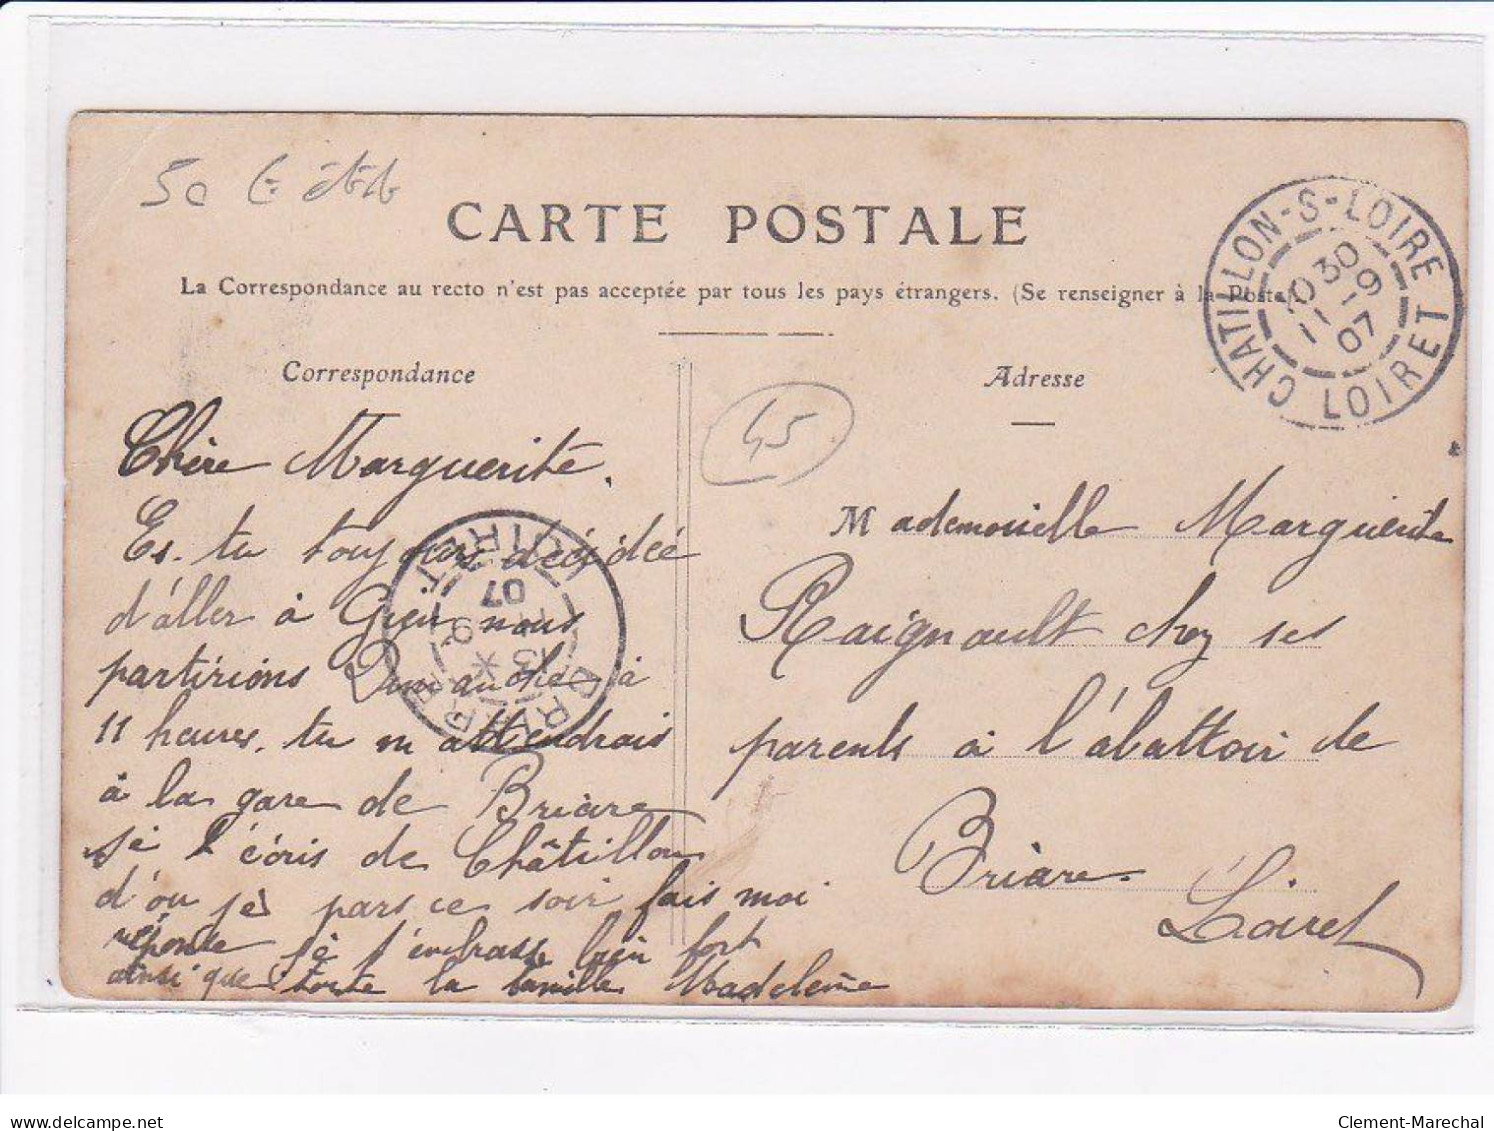 CARTE POSTALE
La Correspondance au recto n'est pas acceptée par tous les pays étrangers. (Se renseigner à la Poste).
Correspondance
Chère Marguerite.
Es. tu toujours décidée
d'aller à Gien nous
partirions Dimanche à
11 heures, tu m attendrais
à la gare de Briare
je t'écris de Châtillon
d'ou je pars ce soir fais moi
réponse je t'embrasse bien fort
ainsi que toute la famille Madeleine
45
Adresse
Mademoiselle Marguerite
Raignault chez ses
parents à l'abattoir de
Briare.
Loiret
CHATILLON-S-LOIRE
LOIRET
1030
9
11
07
BRIARE
LOIRET
07
delcampe.net
Clement-Marechal